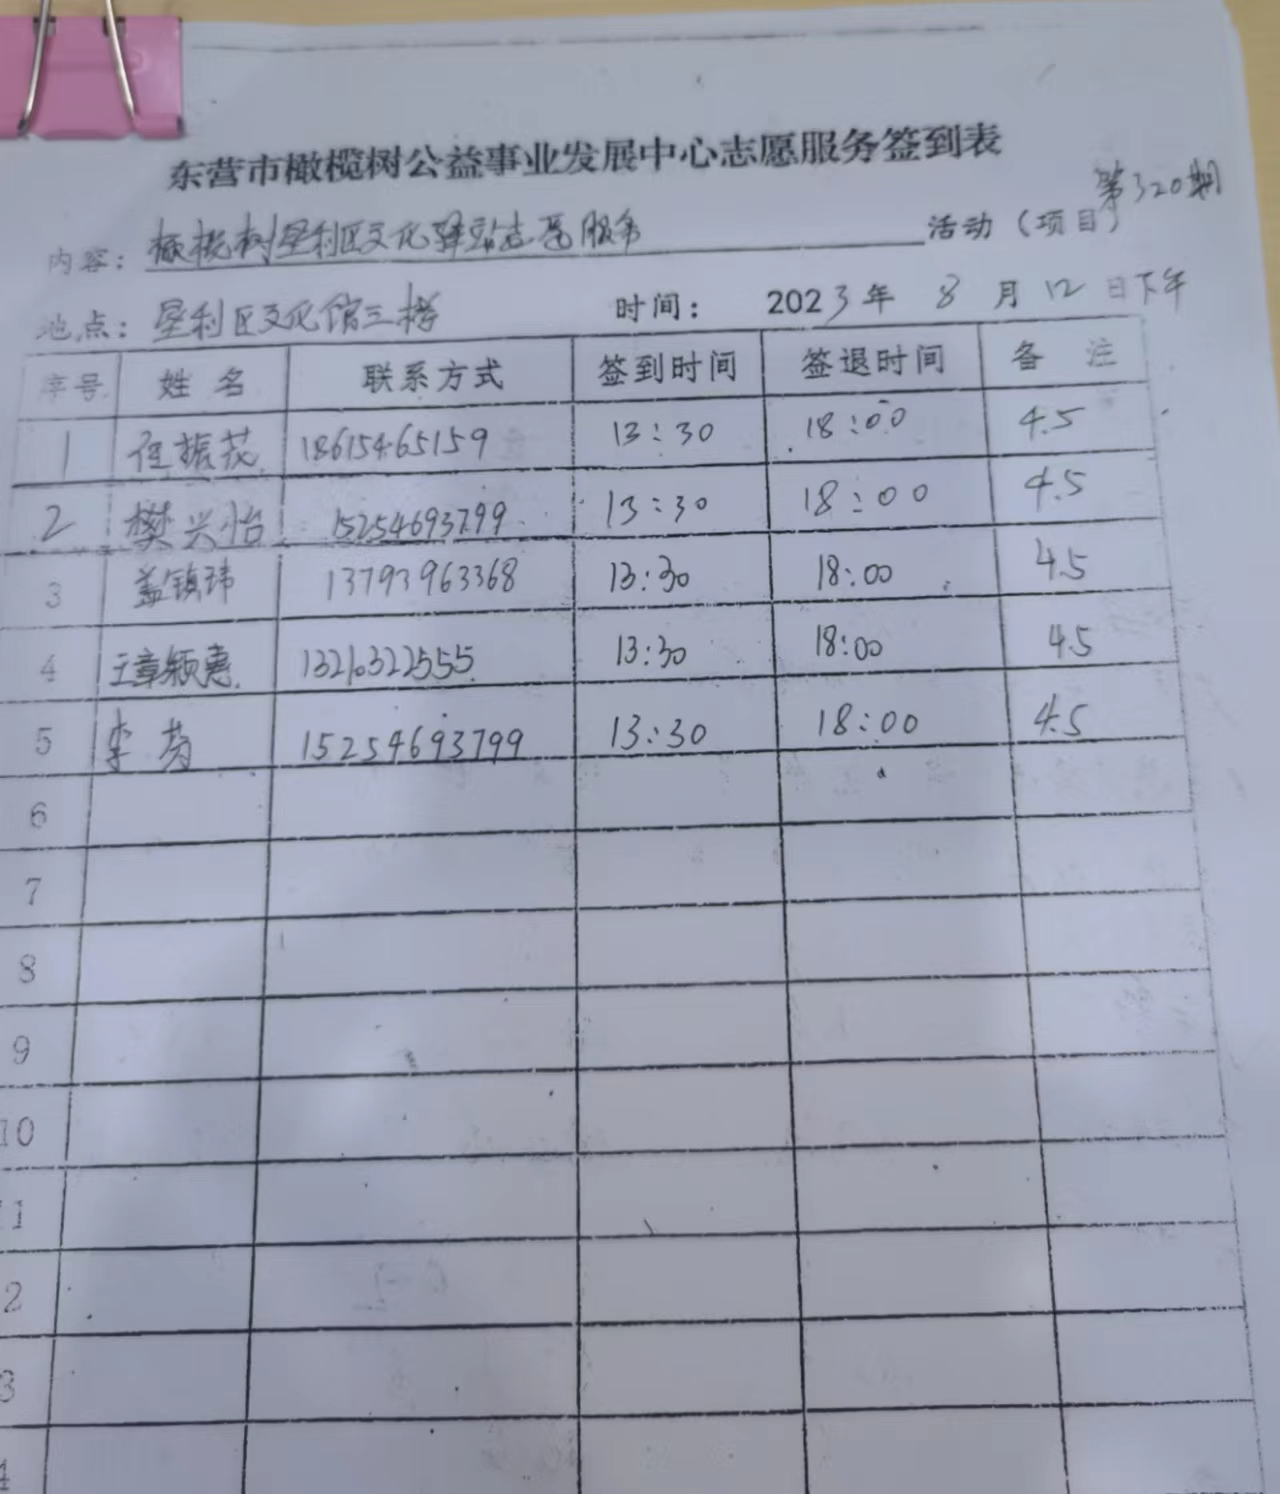 东营市橄榄树公益事业发展中心志愿服务签到表
第320期
内容：橄榄树垦利区文化驿站志愿服务活动（项目）
地点：垦利区文化馆三楼 时间：2023年8月12日下午
序号 姓名 联系方式 签到时间 签退时间 备注
1 任振茂 18615465159 13:30 18:00 4.5
2 樊兴怡 15254693799 13:30 18:00 4.5
3 盖镇玮 13793963368 13:30 18:00 4.5
4 王章颖惠 13210322555 13:30 18:00 4.5
5 李芳 15254693799 13:30 18:00 4.5
6
7
8
9
10
1
2
3
4